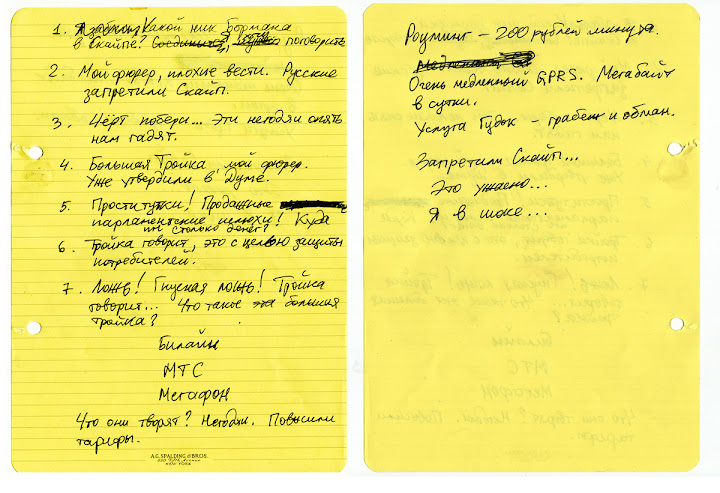 1. Я забыл Какой ник Бормана
в Скайпе? поговорить
2. Мой фюрер, плохие вести. Русские
запретили Скайп.
3. Чёрт побери... Эти негодяи опять
нам гадят.
4. Большая Тройка мой фюрер.
Уже утвердили в Думе.
5. Проститутки! Продажные
парламентские шлюхи! Куда
им столько денег?
6. Тройка говорит, это с целью защиты
потребителей.
7. Ложь! Гнусная ложь! Тройка
говорит... Что такое большая
тройка?
Билайн
МТС
Мегафон
Что они творят? Негодяи. Повысили
тарифы.
A.G. SPALDING & BROS.
520 Fifth Avenue
NEW YORK
Роуминг – 200 рублей минута.
Очень медленный GPRS. Мегабайт
в сутки.
Услуга Гудок – грабеж и обман.
Запретили Скайп...
Это ужасно...
Я в шоке...